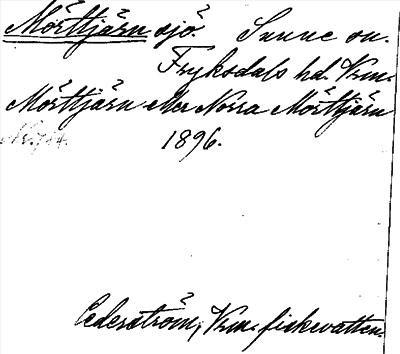 Mörttjärn sjö Sunne sn.
Fryksdals hd. Vrm.
Mörttjärn eller Norra Mörttjärn
1896.
Cederström, Vrm. fiskevatten.